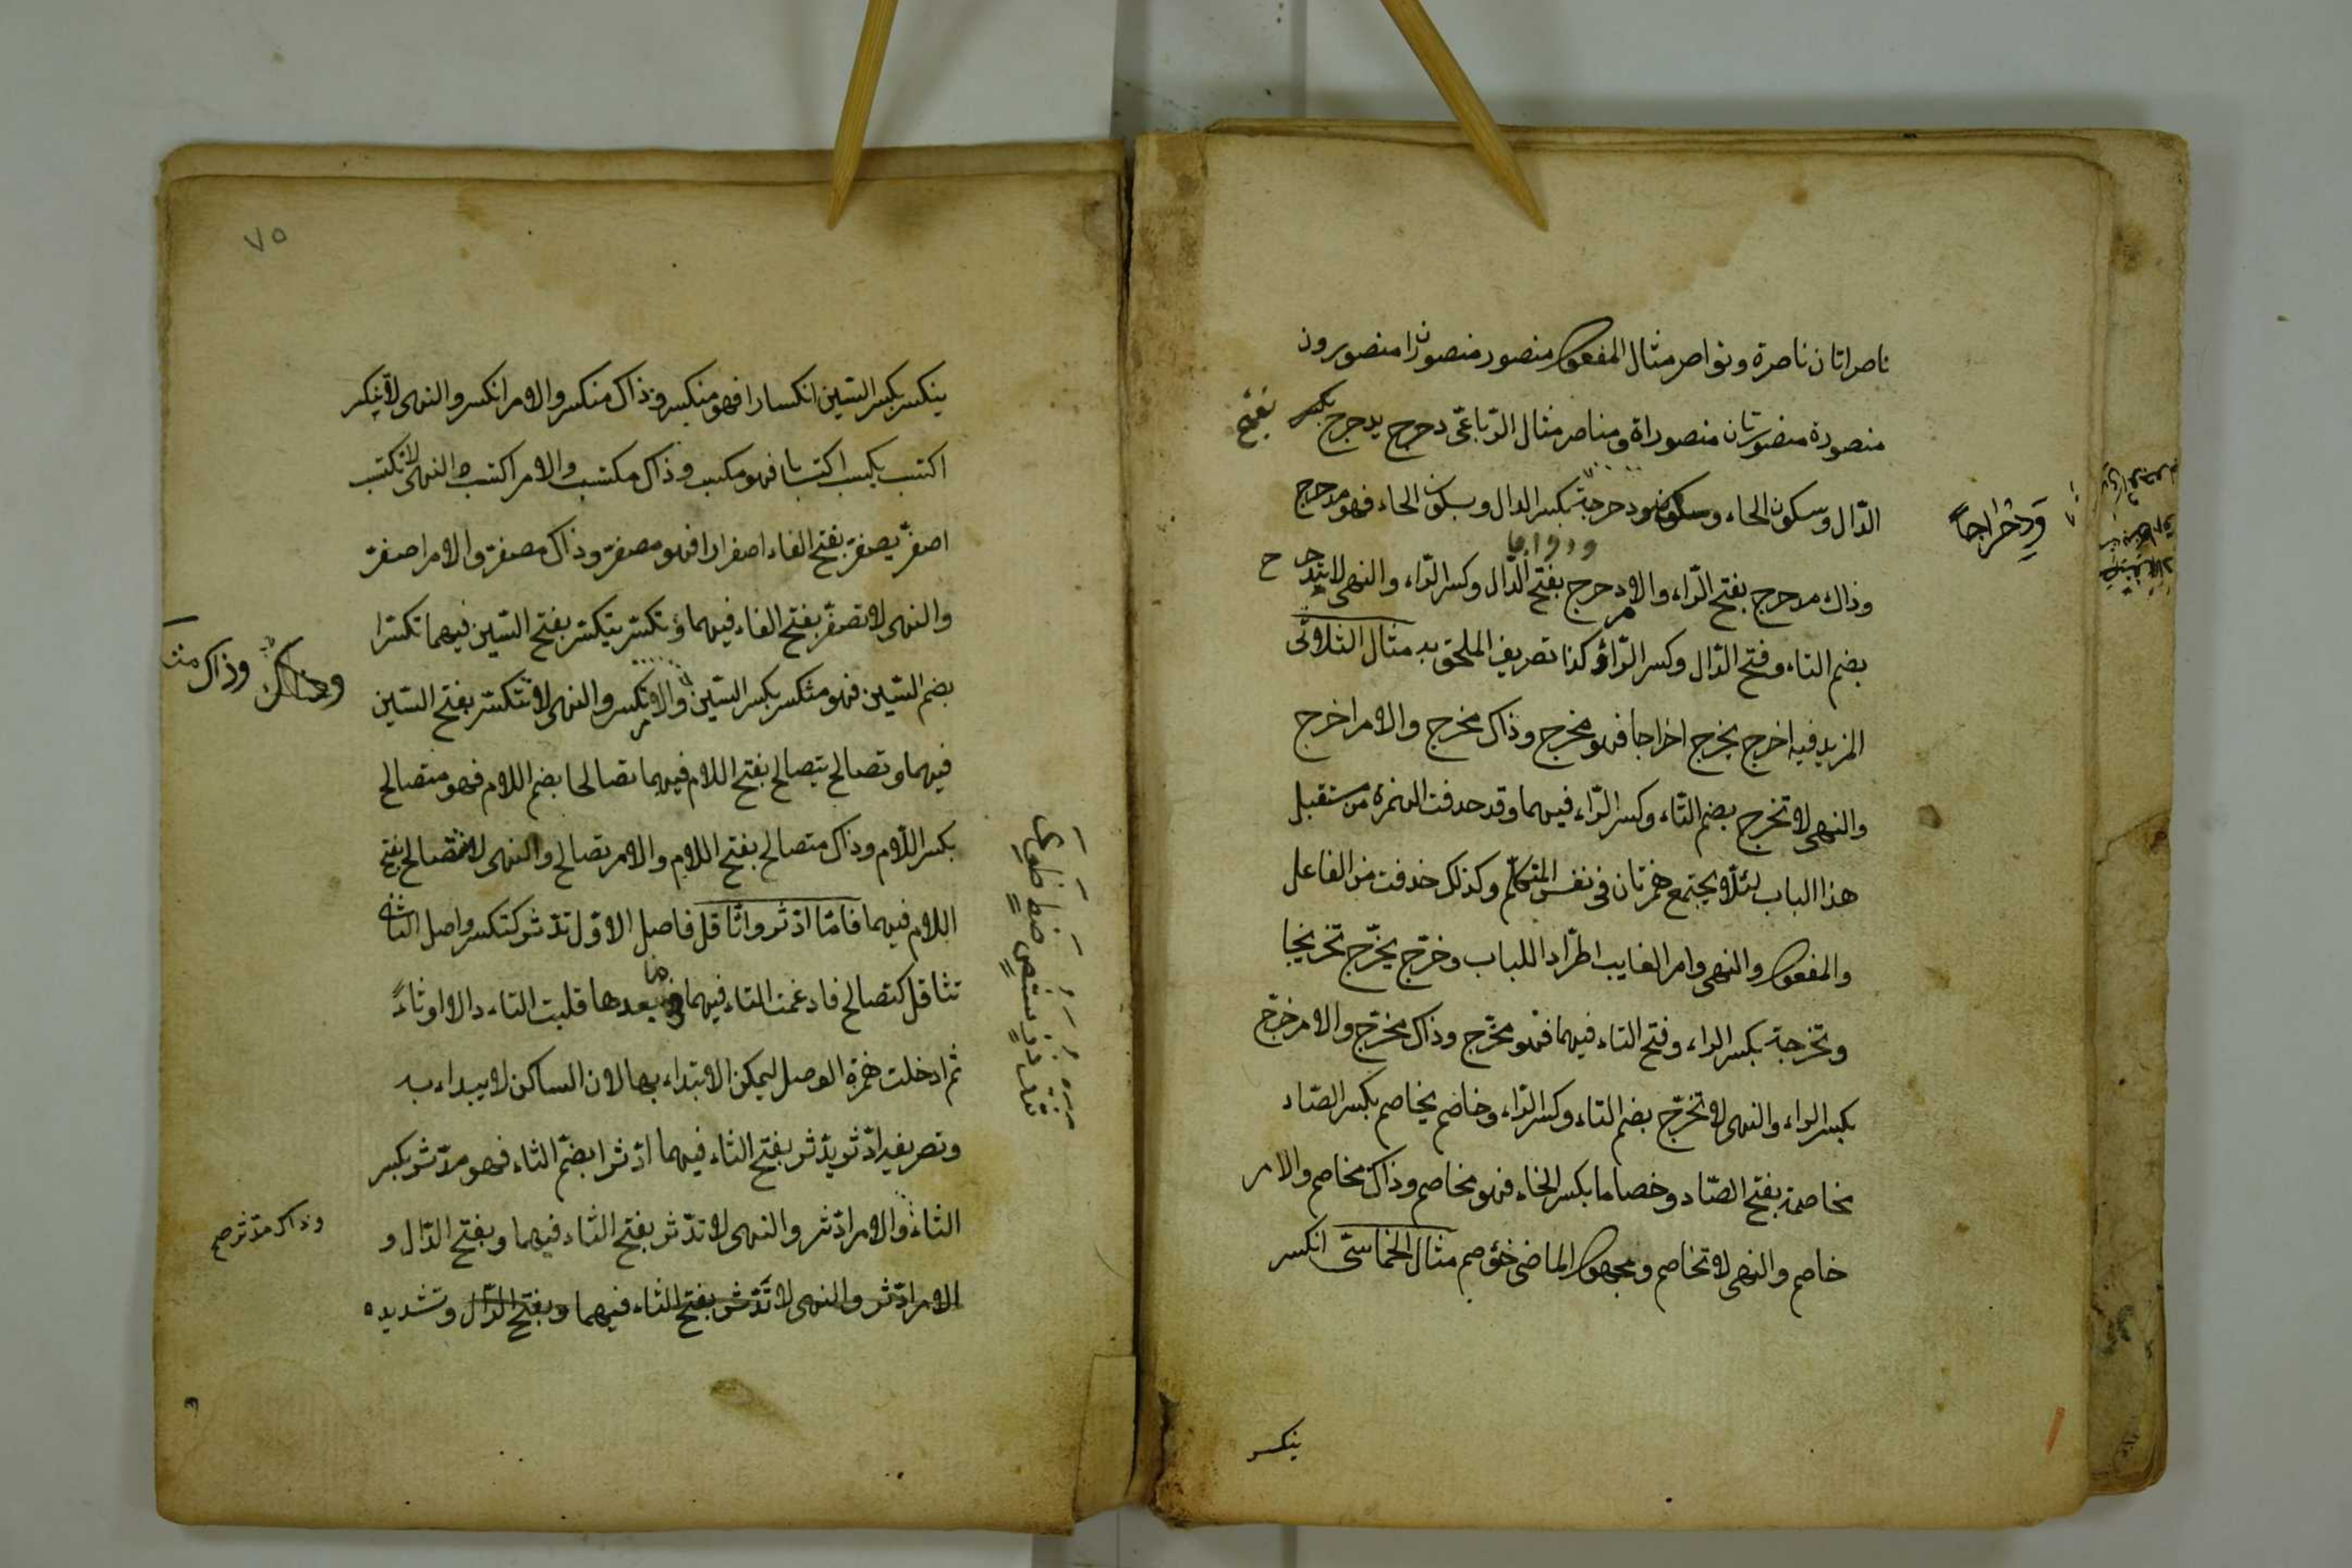 ناصراتان ناصرة ونواصر مثال المفعول منصور منصوران منصورون
منصورة منصورتان منصوراة ومناصر مثال الرباعى دحرج يدحرج بكسر بفتح
الدال وسكون الحاء ودحرجة بكسر الدال وبسكون الحاء فهو مدحرج
ودحراجاً
وذاك مدحرج بفتح الراء والامر دحرج بفتح الدال وكسر الراء والنهى لا تدحرج
بضم التاء وفتح الدال وكسر الراء وكذا تصريف الملحق به مثال الثلاثى
المزيد فيه اخرج يخرج اخراجا فهو مخرج وذاك مخرج والامر اخرج
والنهى لا تخرج بضم التاء وكسر الراء فيهما وقد حذفت الهمزة من مستقبل
هذا الباب لئلا يجتمع همزتان فى نفس المتكلم وكذلك حذفت من الفاعل
والمفعول والنهى وامر الغايب اطرادا للباب وخرّج يخرّج تخريجا
وتخرجة بكسر الراء وفتح التاء فيهما فهو مخرّج وذاك مخرّج والامر خرّج
بكسر الراء والنهى لا تخرّج بضم التاء وكسر الراء وخاصم يخاصم بكسر الصاد
مخاصمة بفتح الصاد وخصاما بكسر الخاء فهو مخاصم وذاك مخاصم والامر
خاصم والنهى لا تخاصم ومجهول الماضى خوصم مثال الخماسى انكسر
ينكسر
٧٥
ينكسر بكسر السين انكسارا فهو منكسر وذاك منكسر والامر انكسر والنهى لا ينكسر
اكتسب يكتسب اكتسابا فهو مكتسب وذاك مكتسب والامر اكتسب والنهى لا تكتسب
اصفرّ يصفرّ بفتح الفاء اصفرارا فهو مصفرّ وذاك مصفرّ والامر اصفرّ
والنهى لا تصفرّ بفتح الفاء فيهما وتكسّر يتكسّر بفتح السين فيهما تكسّرا
بضم السين فهو متكسر بكسر السين والامر تكسر والنهى لا تتكسّر بفتح السين
وذاك
فيهما وتصالح يتصالح بفتح اللام فيهما تصالحا بضم اللام فهو متصالح
بكسر اللام وذاك متصالح بفتح اللام والامر تصالح والنهى لا تتصالح بفتح
اللام فيهما فامّا ادّثر واثّاقل فاصل الاوّل تدثر كتكسر واصل الثانى
تثاقل كتصالح فادغمت التاء فيهما فيما بعدها قلبت التاء دالا او ثاءً
ثم ادخلت همزة الوصل ليمكن الابتداء بها لان الساكن لا يبداء به
وتصريفه ادّثر يدّثر بفتح الثاء فيهما ادّثرا بضم الثاء فهو مدّثر بكسر
الثاء والامر ادّثر والنهى لا تدّثر بفتح الثاء فيهما وبفتح الدال و
وذاك مدّثر صح
الامر ادّثر والنهى لا تدّثر بفتح الثاء فيهما وبفتح الدال وتشديده